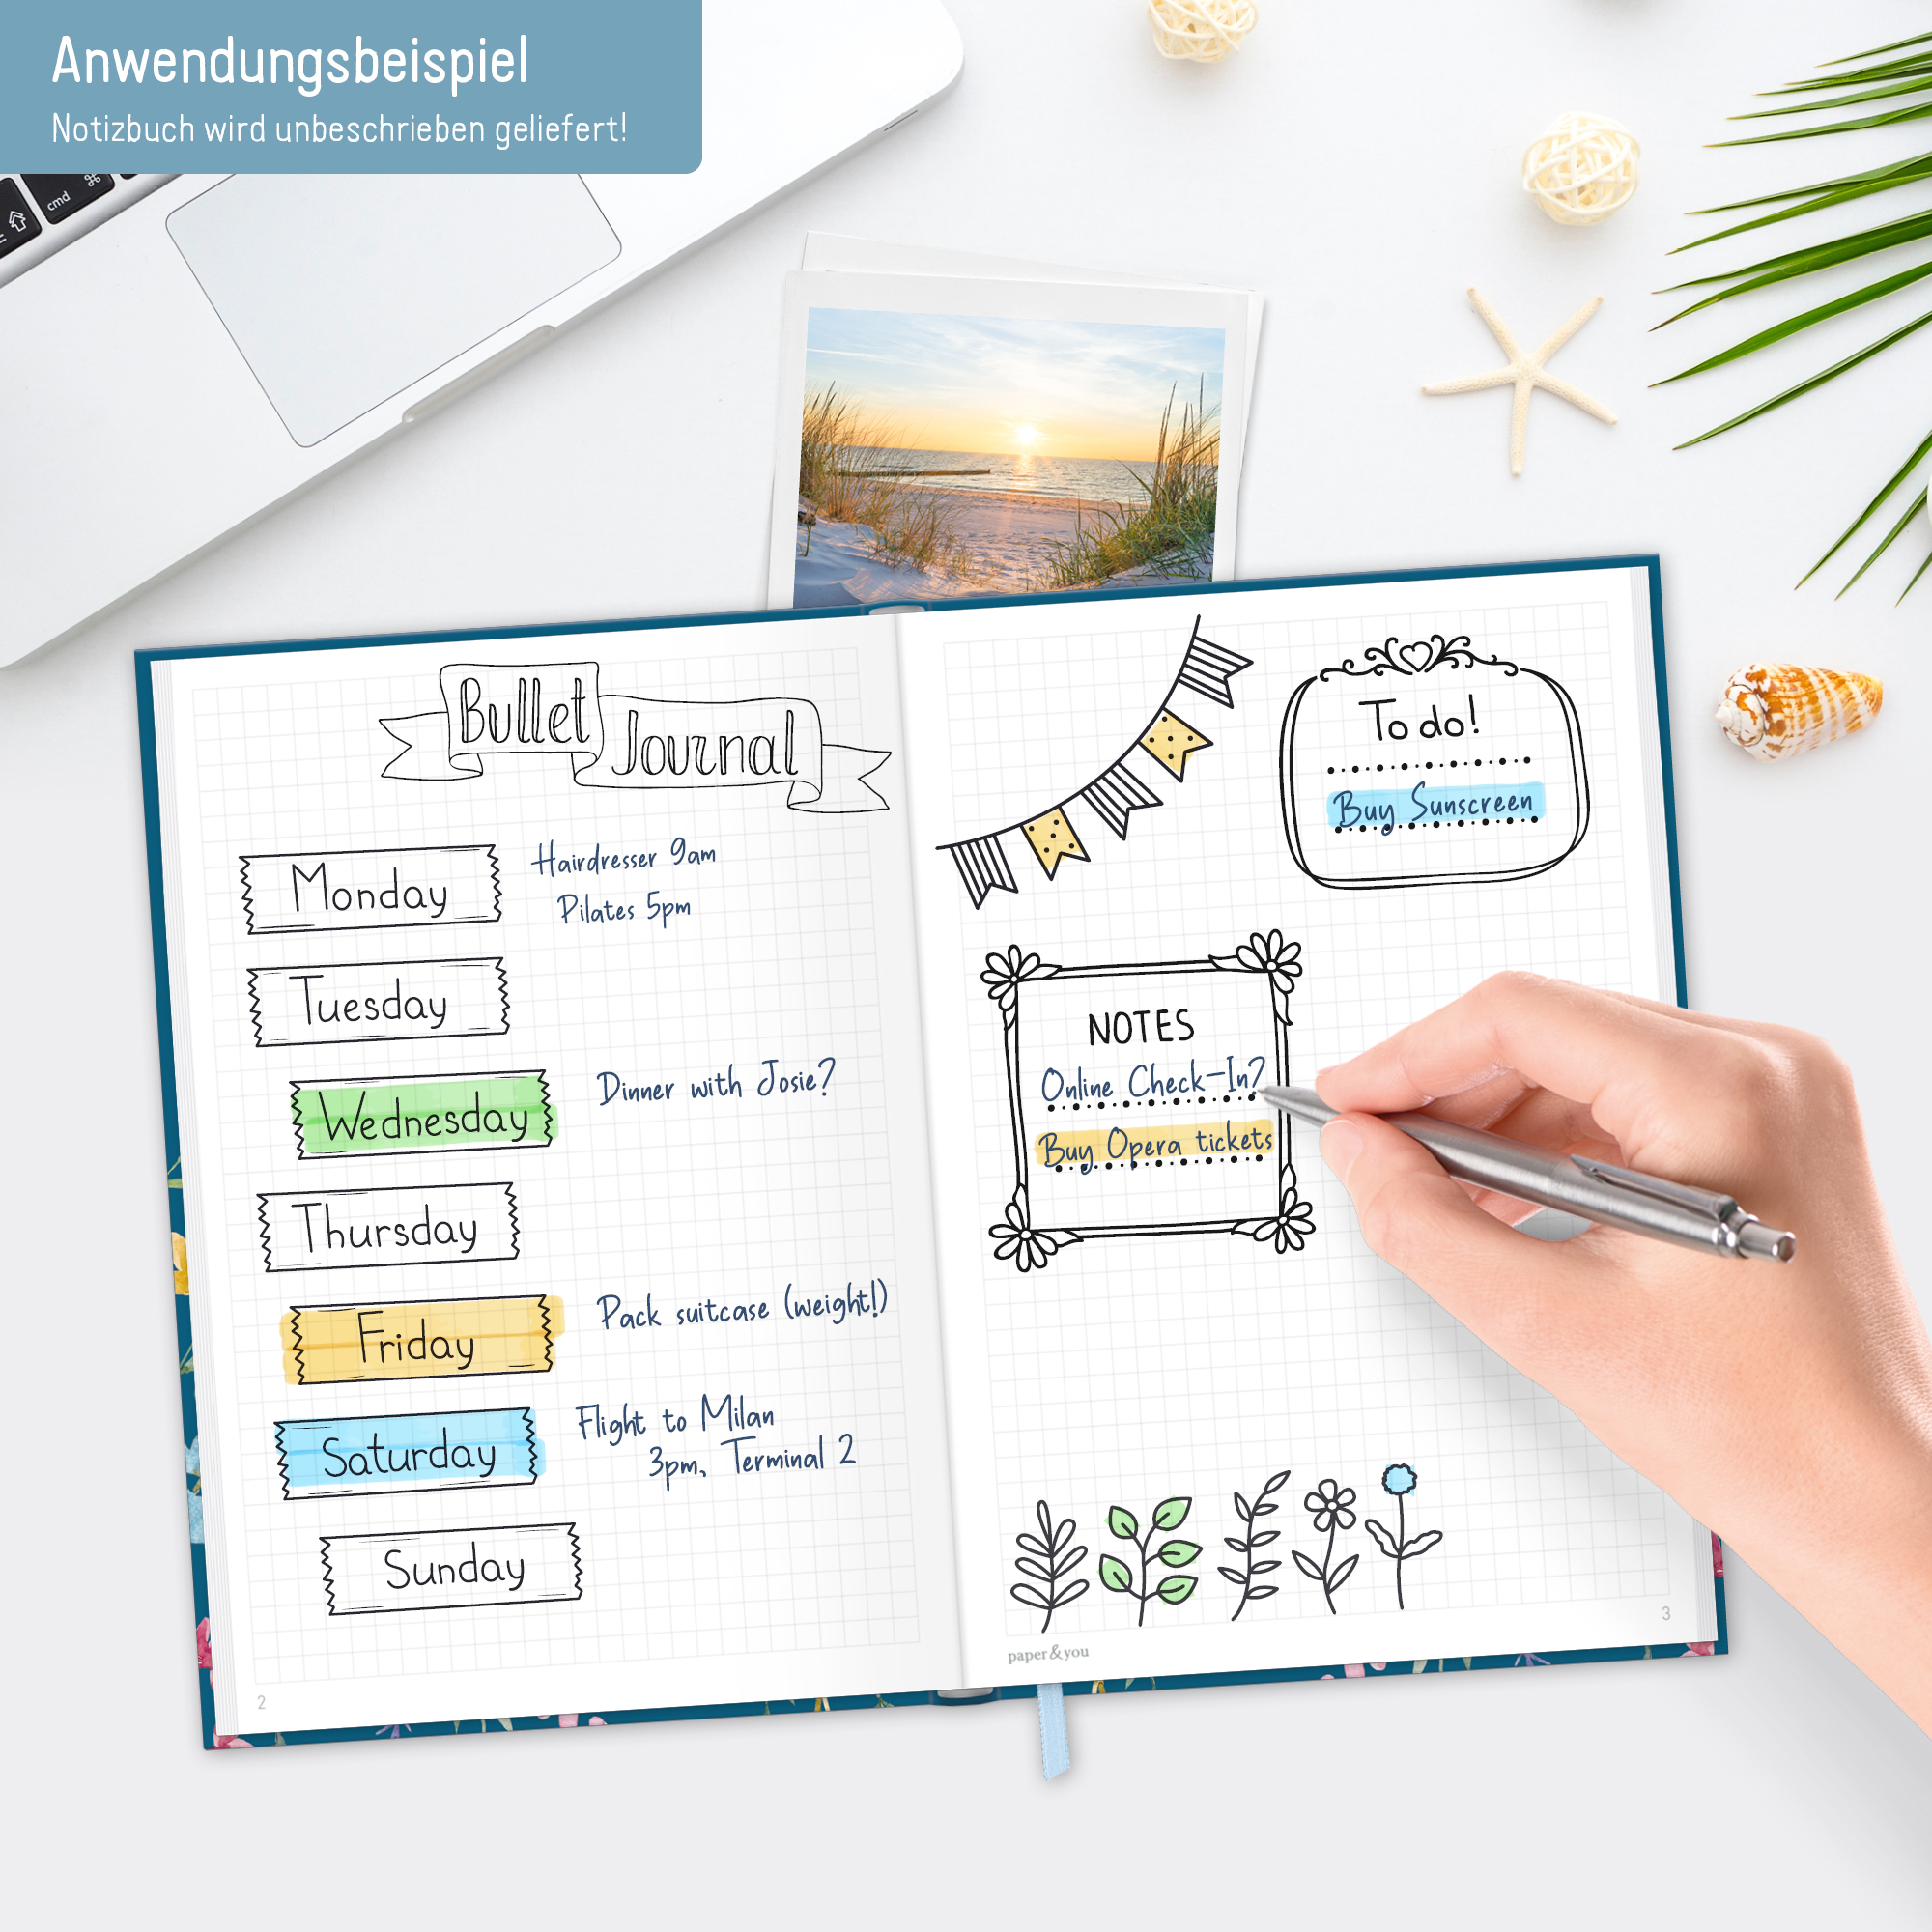 Anwendungsbeispiel
Notizbuch wird unbeschrieben geliefert!
cmd
⌘
Bullet
Journal
Monday
Hairdresser 9am
Pilates 5pm
Tuesday
Wednesday
Dinner with Josie?
Thursday
Friday
Pack suitcase (weight!)
Saturday
Flight to Milan
3pm, Terminal 2
Sunday
2
To do!
Buy Sunscreen
NOTES
Online Check-In?
Buy Opera tickets
paper&you
3